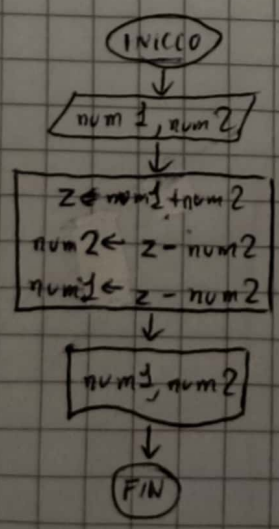 INICCO
num 1, num 2
z ← num1 + num 2
num2 ← z - num2
num1 ← z - num2
num1, num2
FIN